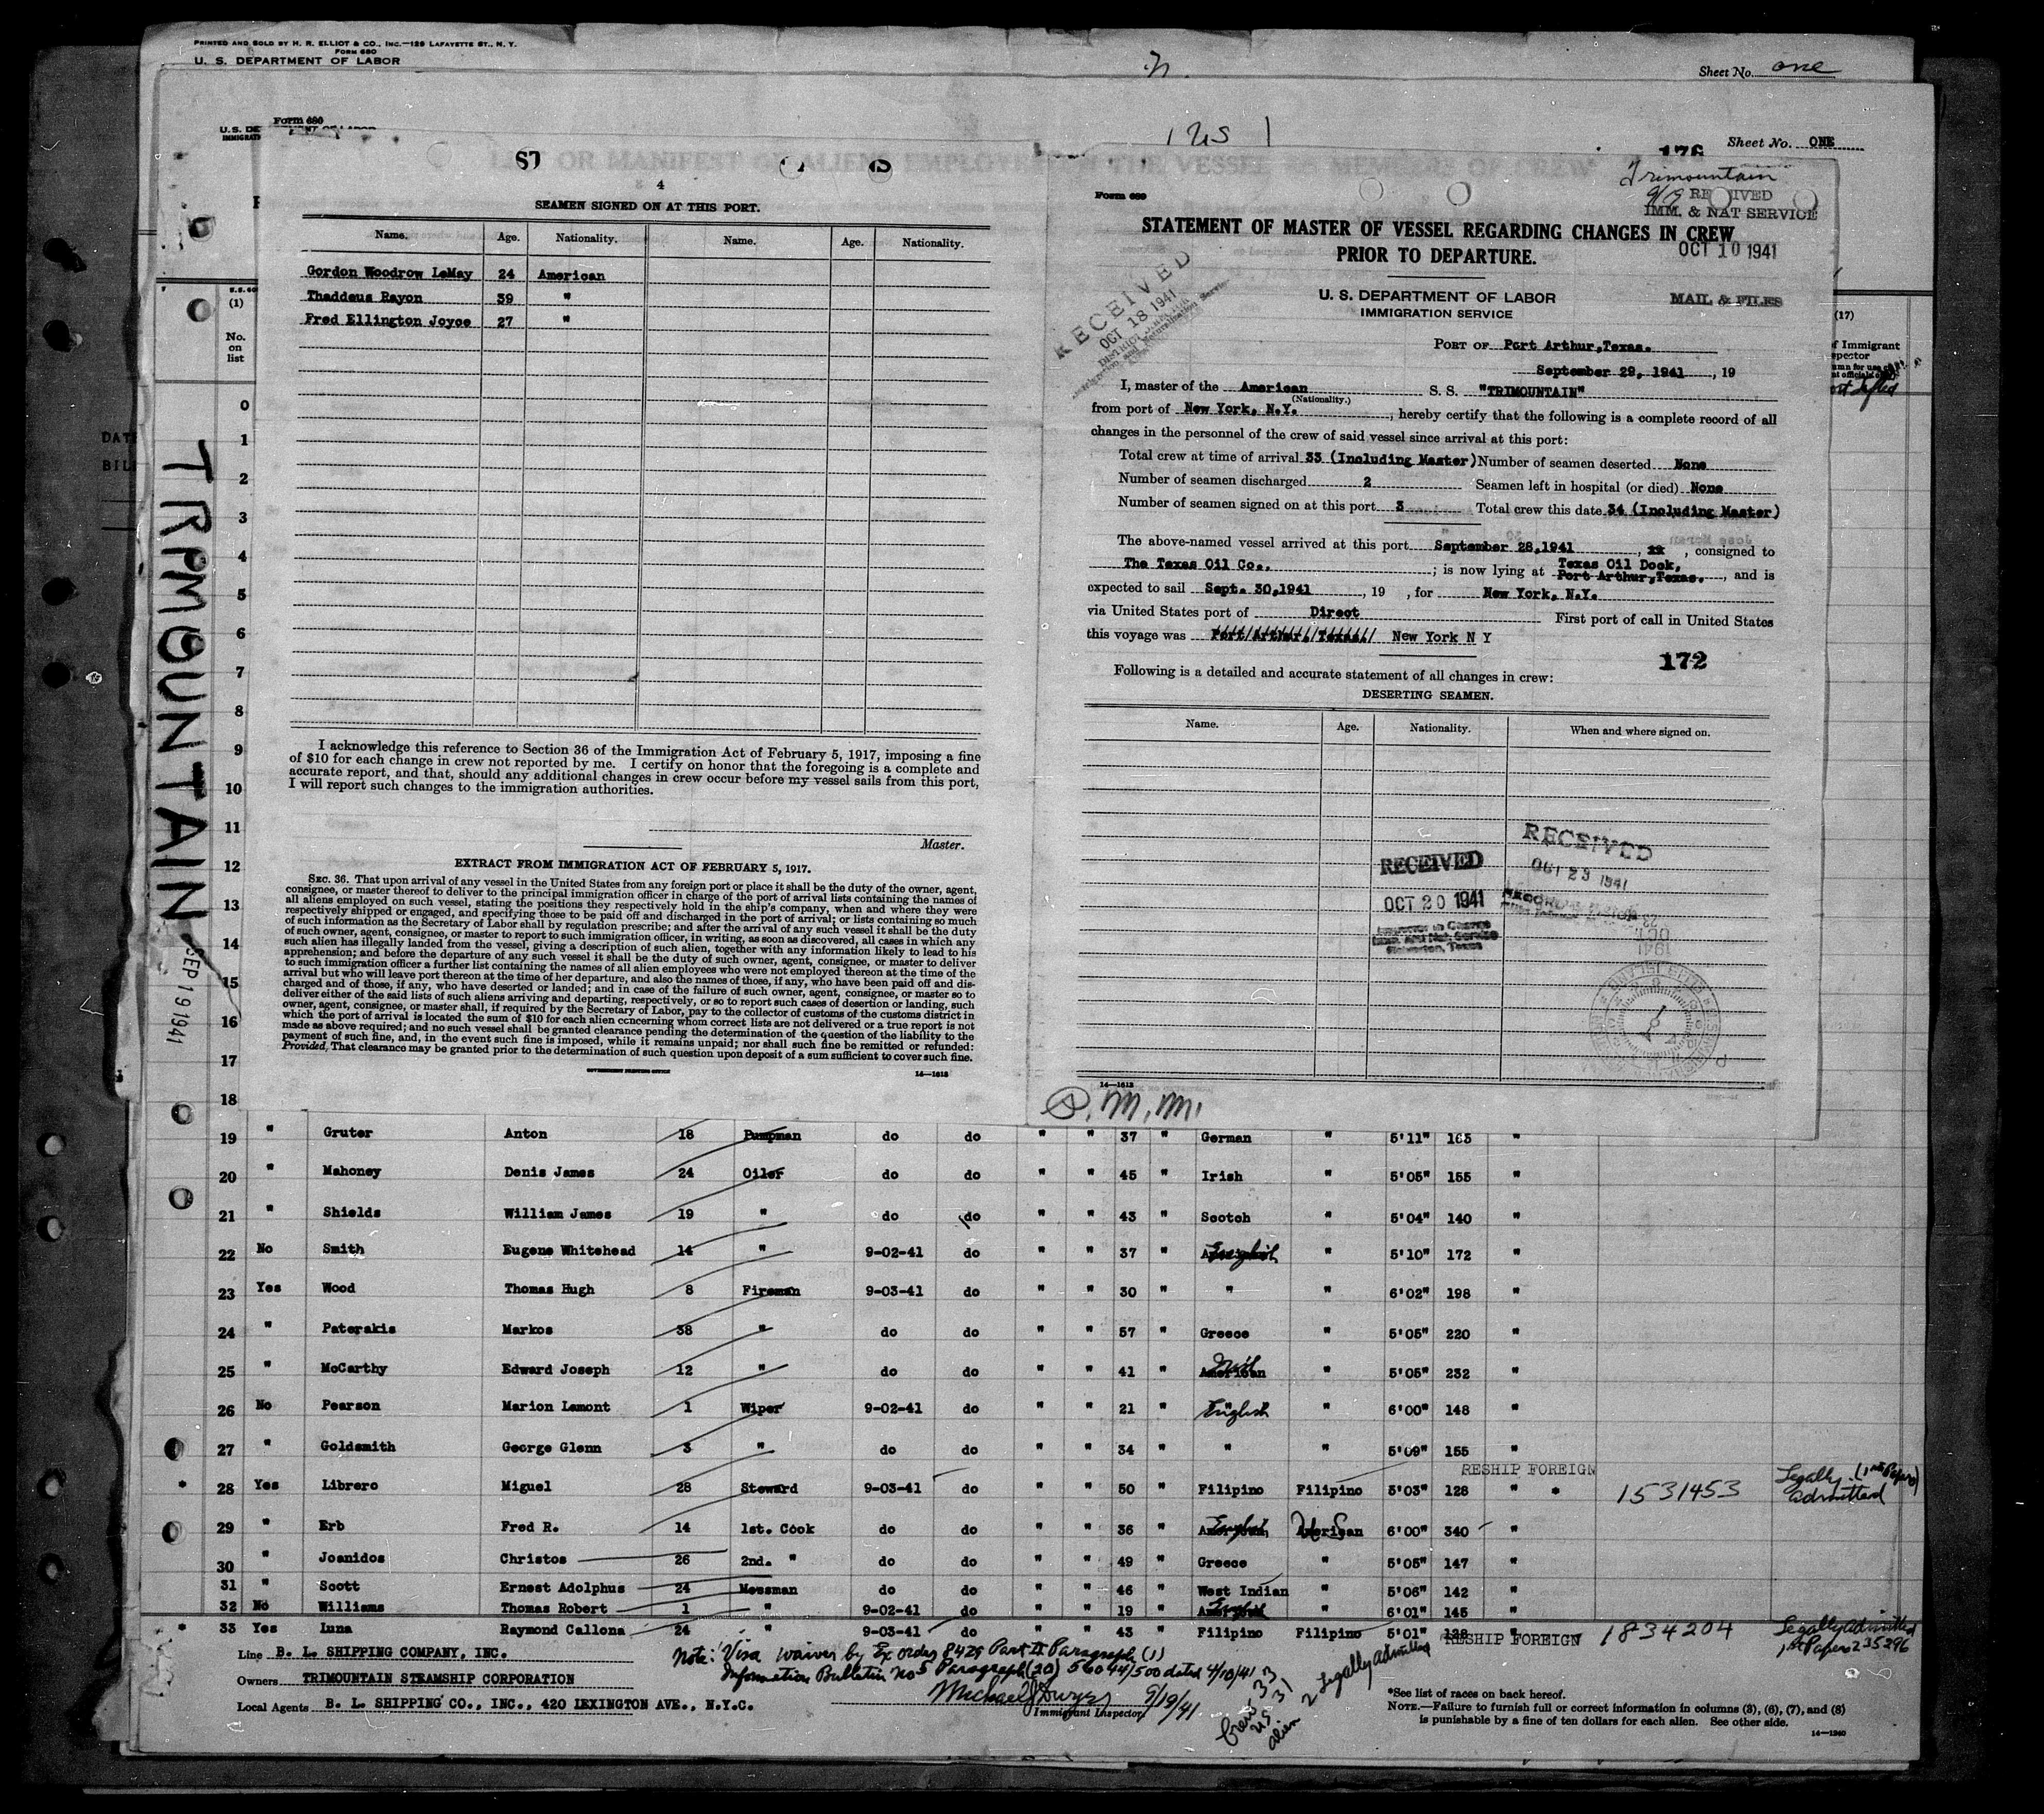 PRINTED AND SOLD BY H. R. ELLIOT & CO., INC.—129 LAFAYETTE ST., N. Y.
FORM 680
U. S. DEPARTMENT OF LABOR
Sheet No. one
Form 680
U.S. DE
1 US 1
Sheet No. ONE
176
4
SEAMEN SIGNED ON AT THIS PORT.
Name. Age. Nationality. Name. Age. Nationality.
Gordon Woodrow LeMay 24 American
Thaddeus Rayon 39 "
Fred Ellington Joyce 27 "
I acknowledge this reference to Section 36 of the Immigration Act of February 5, 1917, imposing a fine
of $10 for each change in crew not reported by me. I certify on honor that the foregoing is a complete and
accurate report, and that, should any additional changes in crew occur before my vessel sails from this port,
I will report such changes to the immigration authorities.
Master.
EXTRACT FROM IMMIGRATION ACT OF FEBRUARY 5, 1917.
SEC. 36. That upon arrival of any vessel in the United States from any foreign port or place it shall be the duty of the owner, agent,
consignee, or master thereof to deliver to the principal immigration officer in charge of the port of arrival lists containing the names of
all aliens employed on such vessel, stating the positions they respectively hold in the ship's company, when and where they were
respectively shipped or engaged, and specifying those to be paid off and discharged in the port of arrival; or lists containing so much
of such information as the Secretary of Labor shall by regulation prescribe; and after the arrival of any such vessel it shall be the duty
of such owner, agent, consignee, or master to report to such immigration officer, in writing, as soon as discovered, all cases in which any
such alien has illegally landed from the vessel, giving a description of such alien, together with any information likely to lead to his
apprehension; and before the departure of any such vessel it shall be the duty of such owner, agent, consignee, or master to deliver
to such immigration officer a further list containing the names of all alien employees who were not employed thereon at the time of the
arrival but who will leave port thereon at the time of her departure, and also the names of those, if any, who have been paid off and dis-
charged and of those, if any, who have deserted or landed; and in case of the failure of such owner, agent, consignee, or master so to
deliver either of the said lists of such aliens arriving and departing, respectively, or so to report such cases of desertion or landing, such
owner, agent, consignee, or master shall, if required by the Secretary of Labor, pay to the collector of customs of the customs district in
which the port of arrival is located the sum of $10 for each alien concerning whom correct lists are not delivered or a true report is not
made as above required; and no such vessel shall be granted clearance pending the determination of the question of the liability to the
payment of such fine, and, in the event such fine is imposed, while it remains unpaid; nor shall such fine be remitted or refunded:
Provided, That clearance may be granted prior to the determination of such question upon deposit of a sum sufficient to cover such fine.
GOVERNMENT PRINTING OFFICE 14—1613
Form 689
Trimountain
9/19 RECEIVED
IMM. & NAT SERVICE
OCT 10 1941
MAIL & FILES
STATEMENT OF MASTER OF VESSEL REGARDING CHANGES IN CREW
PRIOR TO DEPARTURE.
U. S. DEPARTMENT OF LABOR
IMMIGRATION SERVICE
RECEIVED
OCT 18 1941
PORT OF Port Arthur, Texas.
September 29, 1941, 19
I, master of the American S. S. "TRIMOUNTAIN"
(Nationality.)
from port of New York, N.Y., hereby certify that the following is a complete record of all
changes in the personnel of the crew of said vessel since arrival at this port:
Total crew at time of arrival 33 (Including Master) Number of seamen deserted None
Number of seamen discharged 2 Seamen left in hospital (or died) None
Number of seamen signed on at this port 3 Total crew this date 34 (Including Master)
The above-named vessel arrived at this port September 28, 1941, consigned to
The Texas Oil Co.; is now lying at Texas Oil Dock,
Port Arthur, Texas., and is
expected to sail Sept. 30, 1941, 19 , for New York, N.Y.
via United States port of Direct First port of call in United States
this voyage was Port Arthur, Texas New York N Y
172
Following is a detailed and accurate statement of all changes in crew:
DESERTING SEAMEN.
Name. Age. Nationality. When and where signed on.
RECEIVED
OCT 20 1941
Inspector in Charge
Imm. and Nat. Service
Galveston, Texas
RECEIVED
OCT 23 1941
14—1613
TRPMOUNTAIN
SEP 19 1941
(1)
No.
on
list
(17)
0
1
2
3
4
5
6
7
8
9
10
11
12
13
14
15
16
17
18
19 " Gruter Anton 18 Pumpman do do " " 37 " German " 5'11" 165 "
20 " Mahoney Denis James 24 Oiler do do " " 45 " Irish " 5'05" 155 "
21 " Shields William James 19 " do do " " 43 " Scotch " 5'04" 140 "
22 No Smith Eugene Whitehead 14 " 9-02-41 do " " 37 " English " 5'10" 172 "
23 Yes Wood Thomas Hugh 8 Fireman 9-03-41 do " " 30 " " " 6'02" 198 "
24 " Paterakis Markos 38 " do do " " 57 " Greece " 5'05" 220 "
25 " McCarthy Edward Joseph 12 " do do " " 41 " American " 5'05" 232 "
26 No Pearson Marion Lamont 1 Wiper 9-02-41 do " " 21 " English " 6'00" 148 "
27 " Goldsmith George Glenn 3 " do do " " 34 " " " 5'09" 155 "
RESHIP FOREIGN
* 28 Yes Librero Miguel 28 Steward 9-03-41 do " " 50 " Filipino Filipino 5'03" 128 " * 1531453 Legally (1st Papers) admitted
29 " Erb Fred R. 14 1st. Cook do do " " 36 " English American US 6'00" 340 "
30 " Joanidos Christos 26 2nd. " do do " " 49 " Greece " 5'05" 147 "
31 " Scott Ernest Adolphus 24 Messman do do " " 46 " West Indian " 5'06" 142 "
32 No Williams Thomas Robert 1 " 9-02-41 do " " 19 " English " 6'01" 145 "
* 33 Yes Luna Raymond Callona 24 " 9-03-41 do " " 43 " Filipino Filipino 5'01" 128 " RESHIP FOREIGN 1834204 Legally admitted
1st Papers 235296
Line B. L. SHIPPING COMPANY, INC.
Owners TRIMOUNTAIN STEAMSHIP CORPORATION
Local Agents B. L. SHIPPING CO., INC., 420 LEXINGTON AVE., N.Y.C.
Note: Visa waiver by Ex order 8429 Part II Paragraph (1)
Information Bulletin No 5 Paragraph (20) 56044/500 dated 4/10/41
9/19/41
Immigrant Inspector
Crew 33
US 31
alien 2 Legally admitted
*See list of races on back hereof.
NOTE.—Failure to furnish full or correct information in columns (3), (6), (7), and (8)
is punishable by a fine of ten dollars for each alien. See other side.
14—1240